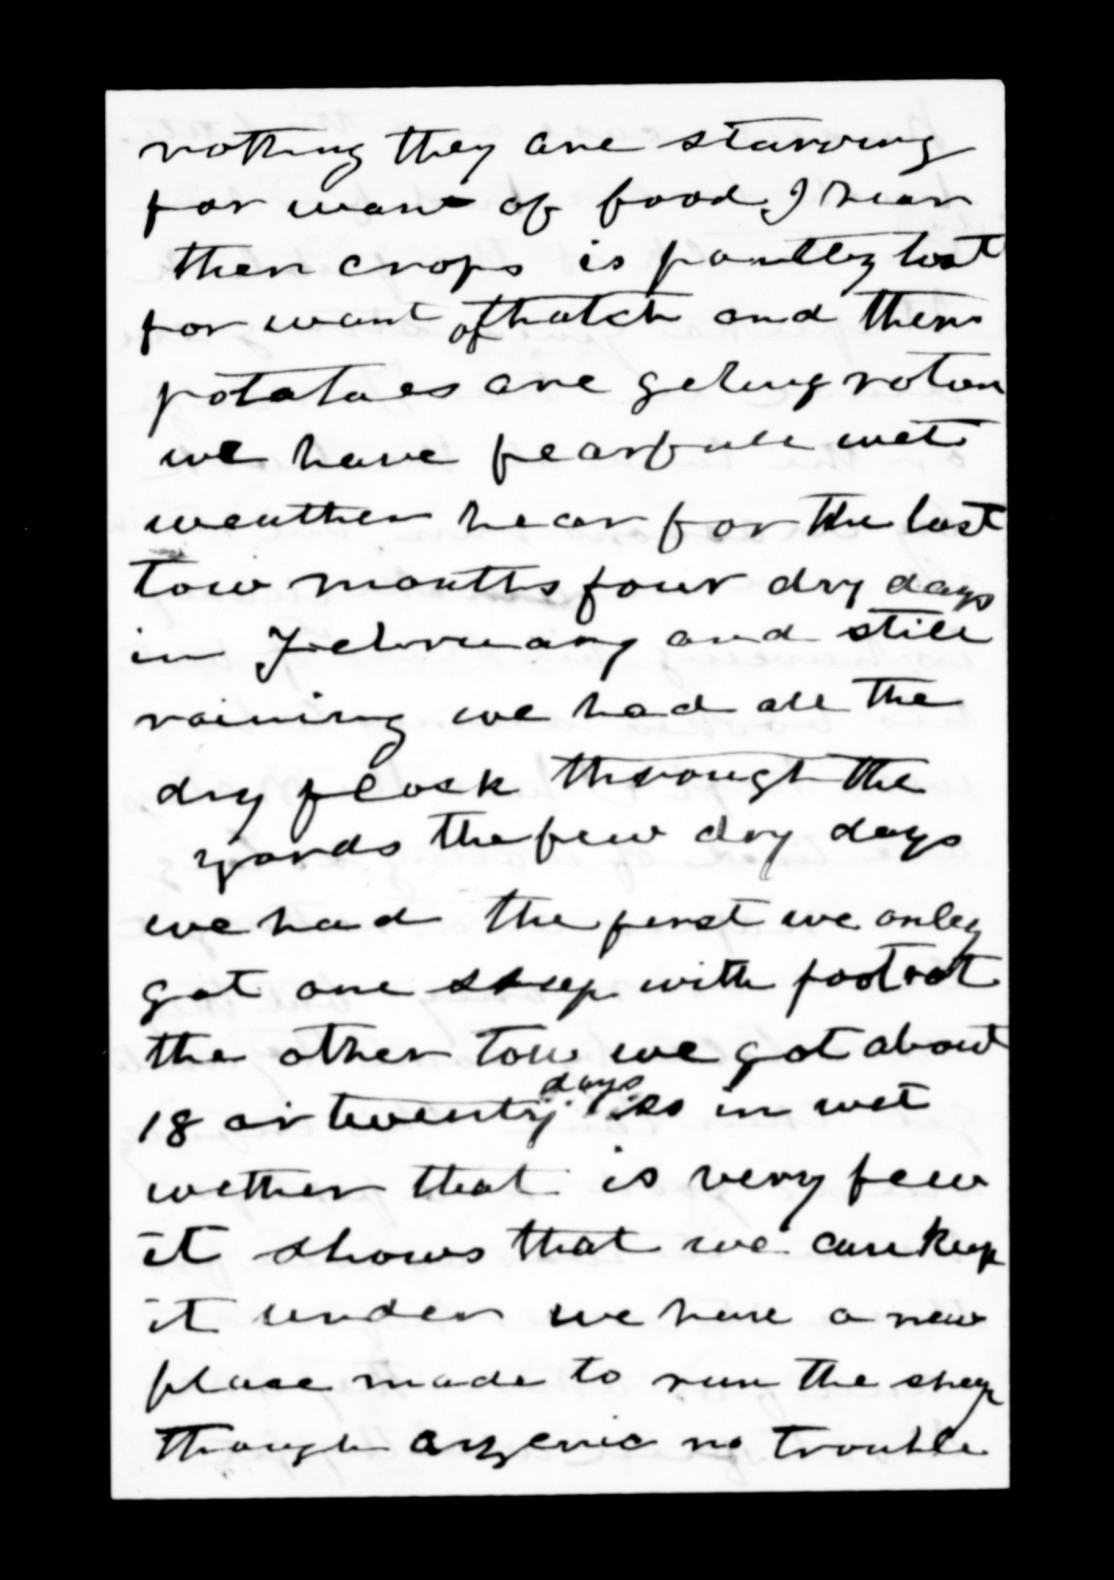 nothing they are starving
for want of food I hear
their crops is partley lost
for want of thatch and there
potatoes are geting roten
we have fearfull wet
weather hear for the last
tow months four dry days
in February and still
raining we had all the
dry flock through the
yards the few dry days
we had the first we only
got one sheep with foot rot
the other tow we got about
18 or twenty days in wet
wether that is very few
it shows that we can keep
it under we have a new
place made to run the sheep
through arzenic no trouble